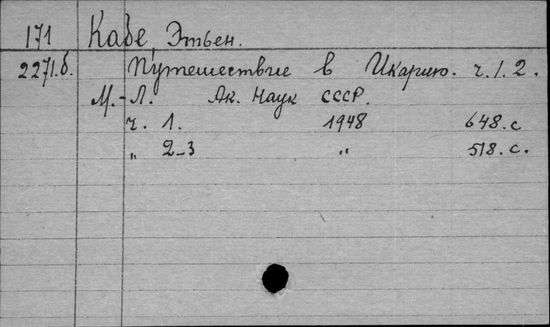 171 Кабе, Этьен.
2271.б. Путешествие в Икарию. ч.1.2.
М.-Л. Ак. Наук СССР.
ч. 1. 1948 648. с
„ 2-3 „ 518. с.